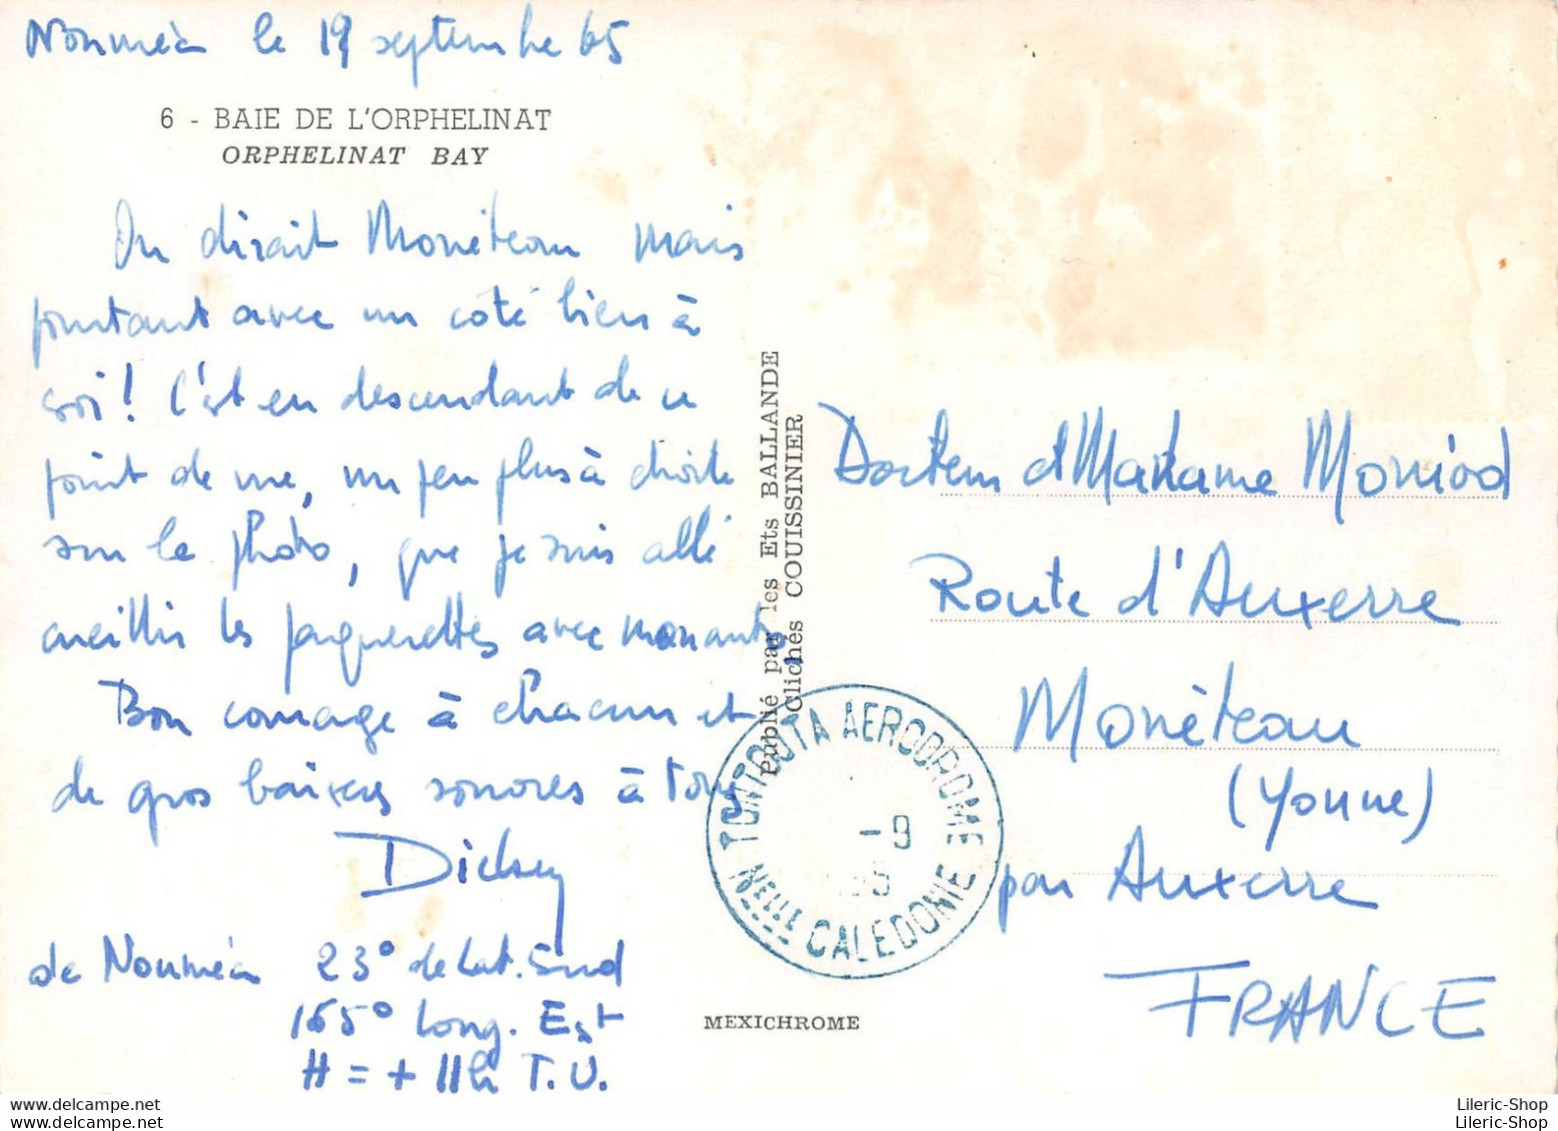 Nouméa le 19 septembre 65
6 - BAIE DE L'ORPHELINAT
ORPHELINAT BAY
On dirait Monéteau mais
pourtant avec un côté bien à
soi! C'est en descendant de ce
point de vue, un peu plus à droite
sur la photo, que je suis allé
cueillir les paquerettes avec
Bon courage à chacun et
de gros baisers sonores à tous
Dicksey
de Nouméa 23° de Lat. Sud
165° Long. Est
H = + 11h T.U.
Publié par les Ets BALLANDE
Clichés COUISSINIER
MEXICHROME
TONTOUTA AERODROME
-9
NELLE CALEDONIE
Docteur et Madame Moniod
Route d'Auxerre
Monéteau
(Yonne)
par Auxerre
FRANCE
Lileric-Shop
Lileric-Shop
www.delcampe.net
www.delcampe.net